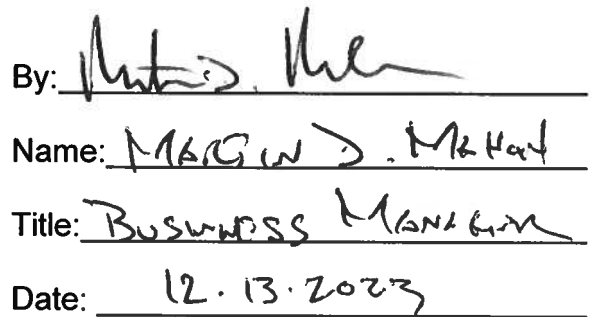 By:
Name: D. Mahan
Title: Business Manager
Date: 12.13.2023